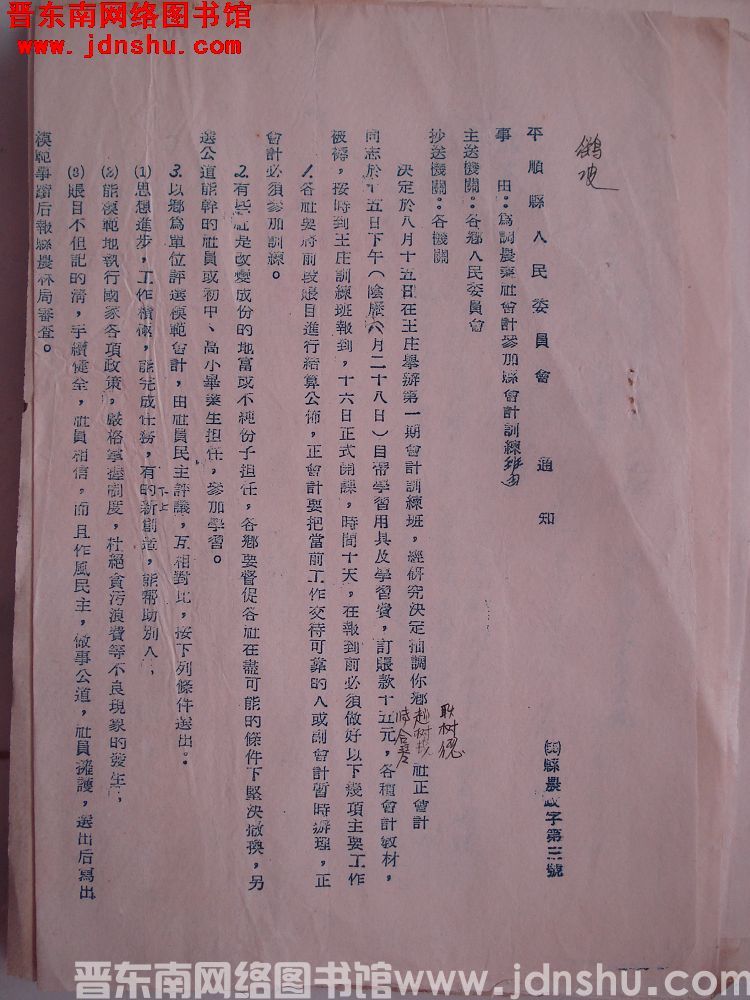 晋东南网络图书馆
www.jdnshu.com
平順縣人民委員會 通知
縣農政字第三號
事 由：為調農業社會計參加縣會計訓練班由
主送機關：各鄉人民委員會
抄送機關：各機關
決定於八月十五日在王庄舉辦第一期會計訓練班，經研究決定抽調你鄉 社正會計
耿树德
赵树
同志於十五日下午（陰歷六月二十八日）自帶學習用具及學習費，訂賬款十五元，各種會計教材，
被褥，按時到王庄訓練班報到，十六日正式開課，時間十天，在報到前必須做好以下幾項主要工作
1. 各社要將前段賬目進行結算公佈，正會計要把當前工作交待可靠的人或副會計暫時辦理，正
會計必須參加訓練。
2. 有些社是改變成份的地富或不純份子担任，各鄉要督促各社在盡可能的條件下堅決撤換，另
選公道能幹的社員或初中、高小畢業生担任，參加學習。
3. 以鄉為單位評選模範會計，由社員民主評議，互相對比，按下列條件選出：
(1) 思想進步，工作積極，能完成任務，有的新創造，能帮助別人，
(2) 能模範地執行國家各項政策，嚴格掌握制度，杜絕貪污浪費等不良現象的發生，
(3) 賬目不但記的清，手續健全，社員相信，而且作風民主，做事公道，社員擁護，選出后寫出
模範事蹟后報縣農林局審查。
晋东南网络图书馆www.jdnshu.com